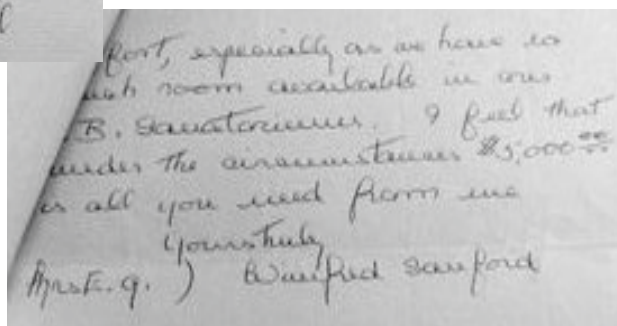 fort, especially as we have so
much room available in our
B. Sanatoriums. I feel that
under the circumstances $5,000.00
is all you need from me
Yours truly
) Winifred Sanford